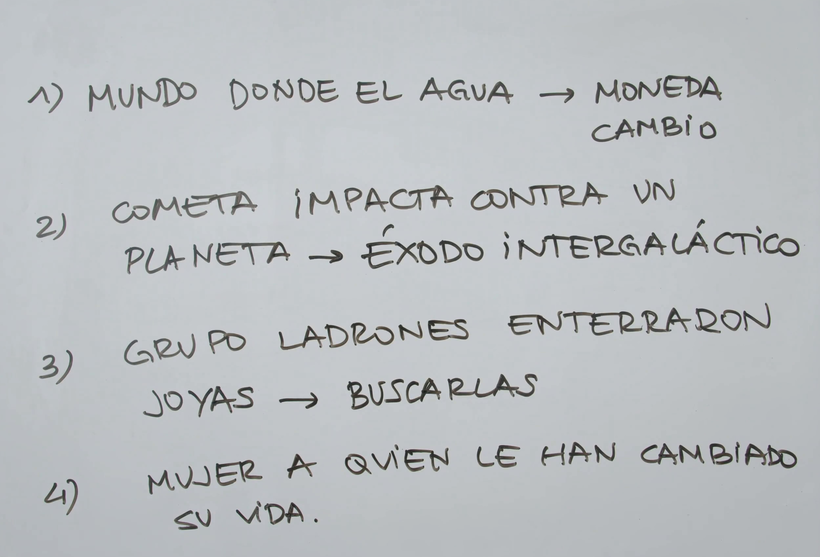 1) MUNDO DONDE EL AGUA → MONEDA
CAMBIO
2) COMETA IMPACTA CONTRA UN
PLANETA → ÉXODO INTERGALÁCTICO
3) GRUPO LADRONES ENTERRARON
JOYAS → BUSCARLAS
4) MUJER A QUIEN LE HAN CAMBIADO
SU VIDA.